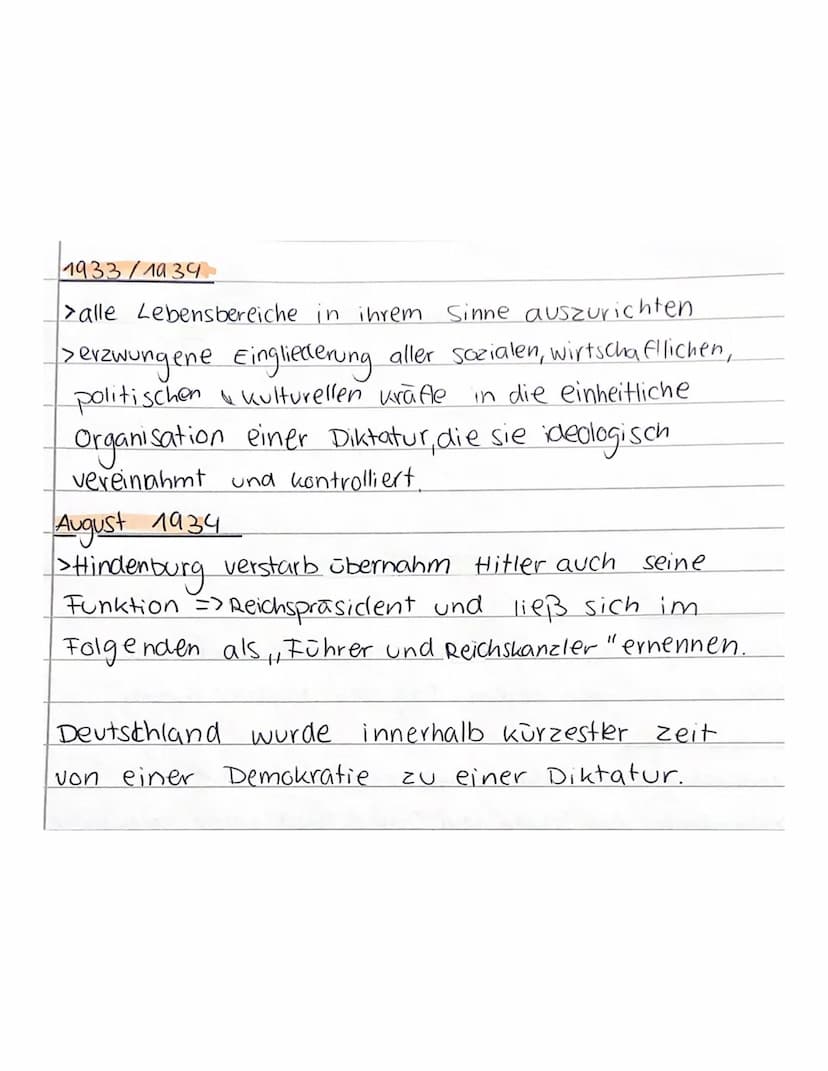 1933/1934
>alle Lebensbereiche in ihrem Sinne auszurichten
>erzwungene Eingliederung aller sozialen, wirtschaftlichen,
politischen & kulturellen Kräfte in die einheitliche
Organisation einer Diktatur, die sie ideologisch
vereinahmt und kontrolliert.
August 1934
>Hindenburg verstarb übernahm Hitler auch seine
Funktion => Reichspräsident und ließ sich im
Folgenden als „Führer und Reichskanzler" ernennen.
Deutschland wurde innerhalb kürzester Zeit
von einer Demokratie zu einer Diktatur.